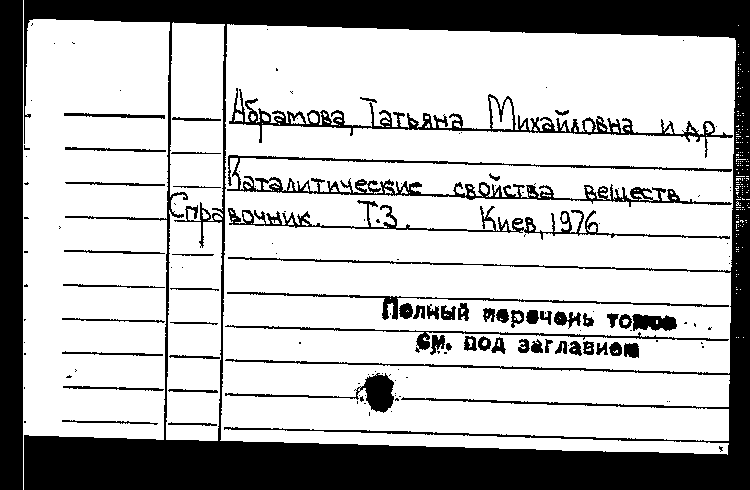 Абрамова, Татьяна Михайловна и др.
Каталитические свойства веществ.
Справочник. Т.3. Киев, 1976.
Полный перечень томов
см. под заглавием